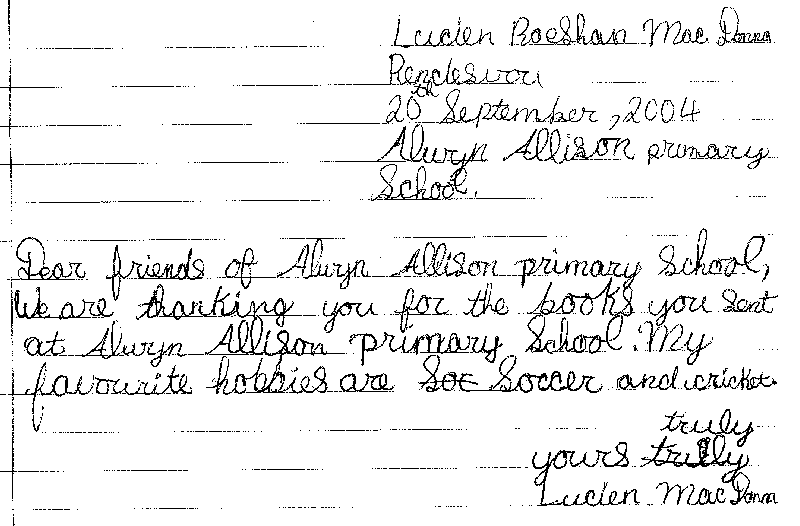 Lucien Roeshan Mac Donna
Rendesvou
20th September, 2004
Alwyn Allison primary
School.
Dear friends of Alwyn Allison primary School,
We are thanking you for the books you sent
at Alwyn Allison primary School. My
favourite hobbies are Soc Soccer and cricket.
truly
yours trully
Lucien Mac Donna